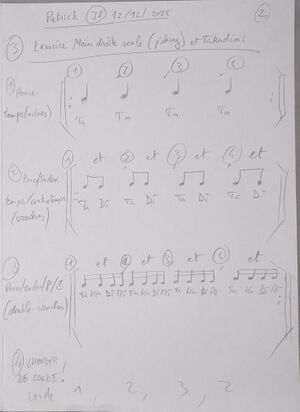 Patrick (J8) 12/12/2025 (2)
(3) Exercice Main droite seule (picking) et Takadimi
(1) Pouce
temps (noires)
(1) (2) (3) (4)
Ta Ta Ta Ta
(2) Pouce/Index
temps/contretemps
(croches)
(1) et (2) et (3) et (4) et
Ta Di Ta Di Ta Di Ta Di
(3) Pouce/Index/P/I
(double-croches)
(1) et (2) et (3) et (4) et
Ta Ka Di Mi Ta Ka Di Mi Ta Ka Di Mi Ta Ka Di Mi
(4) CHANGER
DE CORDE!
Corde 1, 2, 3, 2